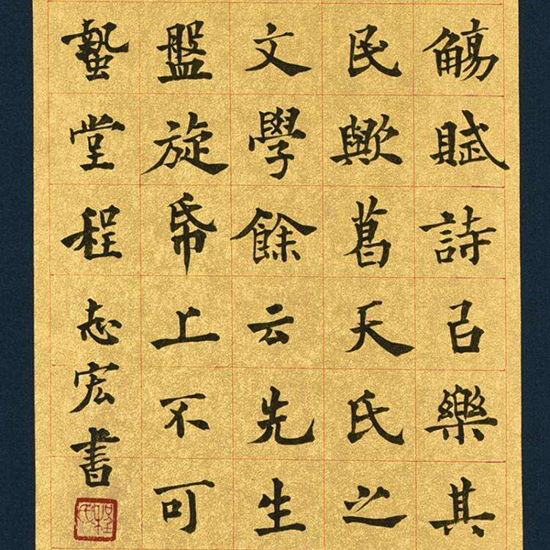 觴賦詩㠯樂其
民歟葛天氏之
文學餘云先生
盤旋帋上不可
蟄堂程志宏書